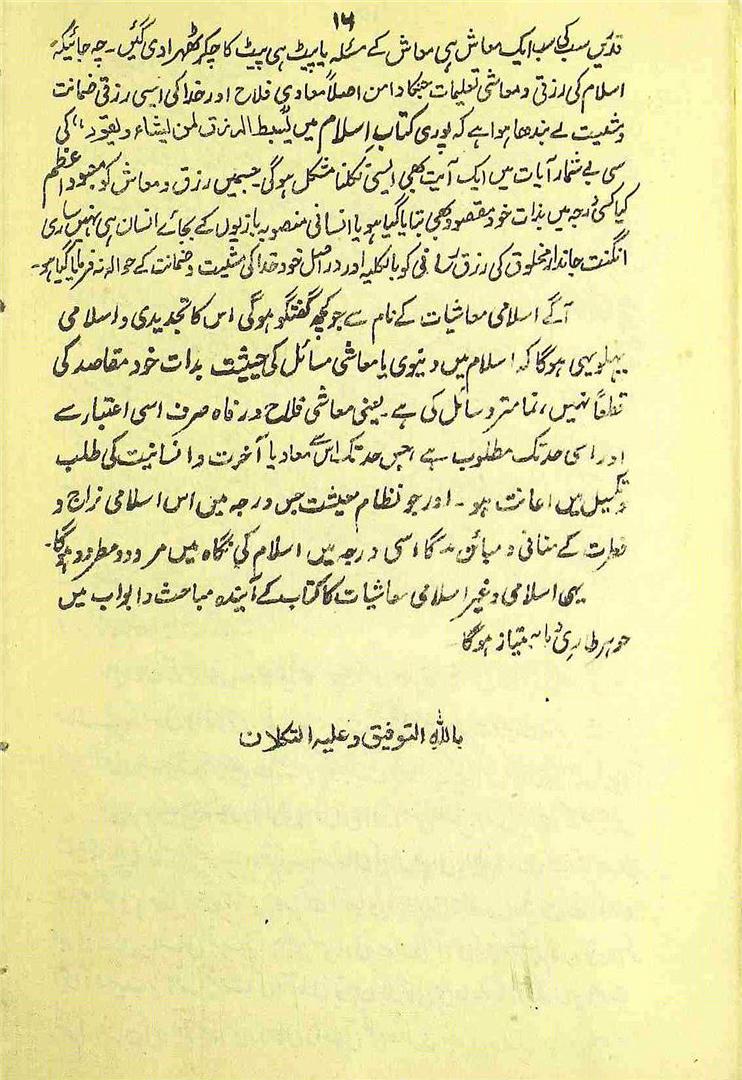 ۱۶
قدریں سب کی سب ایک معاش ہی معاش کے مسئلہ یا پیٹ ہی پیٹ کا چکر ٹھہرا دی گئیں ۔ چہ جائیکہ
اسلام کی رزقی و معاشی تعلیمات جنکا دامن اصلاً معادی فلاح اور خدا کی ایسی رزقی ضمانت
و مشیت سے بندھا ہوا ہے کہ پوری کتابِ اسلام میں یبسط الرزق لمن یشاء ویقدر" کی
سی بے شمار آیات میں ایک آیت بھی ایسی نکلنا مشکل ہوگی ۔ جسمیں رزق و معاش کو معبودِ اعظم
کیا کسی درجہ میں بذات خود مقصود بھی بتایا گیا ہو یا انسانی منصوبہ بازیوں کے بجائے انسان ہی نہیں ساری
انگنت جاندار مخلوق کی رزق رسانی کو بالکلیہ اور دراصل خود خدا کی مشیت و ضمانت کے حوالہ نہ فرمایا گیا ہو ۔
آگے اسلامی معاشیات کے نام سے جو کچھ گفتگو ہوگی اس کا تجدیدی و اسلامی
پہلو یہی ہوگا کہ اسلام میں دنیوی یا معاشی مسائل کی حیثیت بذات خود مقاصد کی
قطعاً نہیں ، تمامتر وسائل کی ہے ۔ یعنی معاشی فلاح و رفاہ صرف اسی اعتبار سے
اور اسی حد تک مطلوب ہے جس حد تک اس سے معاد یا آخرت و انسانیت کی طلب
و تکمیل میں اعانت ہو ۔ اور جو نظام معیشت جس درجہ میں اس اسلامی مزاج و
فطرت کے منافی و مبائن ہوگا اسی درجہ میں اسلام کی نگاہ میں مردود و مطرود ہوگا ۔
یہی اسلامی و غیر اسلامی معاشیات کا کتاب کے آیندہ مباحث و ابواب میں
جوہری مابہ امتیاز ہوگا
باللہ التوفیق و علیہ التکلان